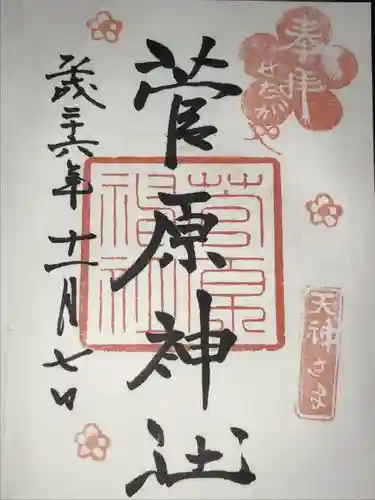 奉拝
せたがや
菅原神社
菅原神社
天神さま
平成三十六年十一月七日